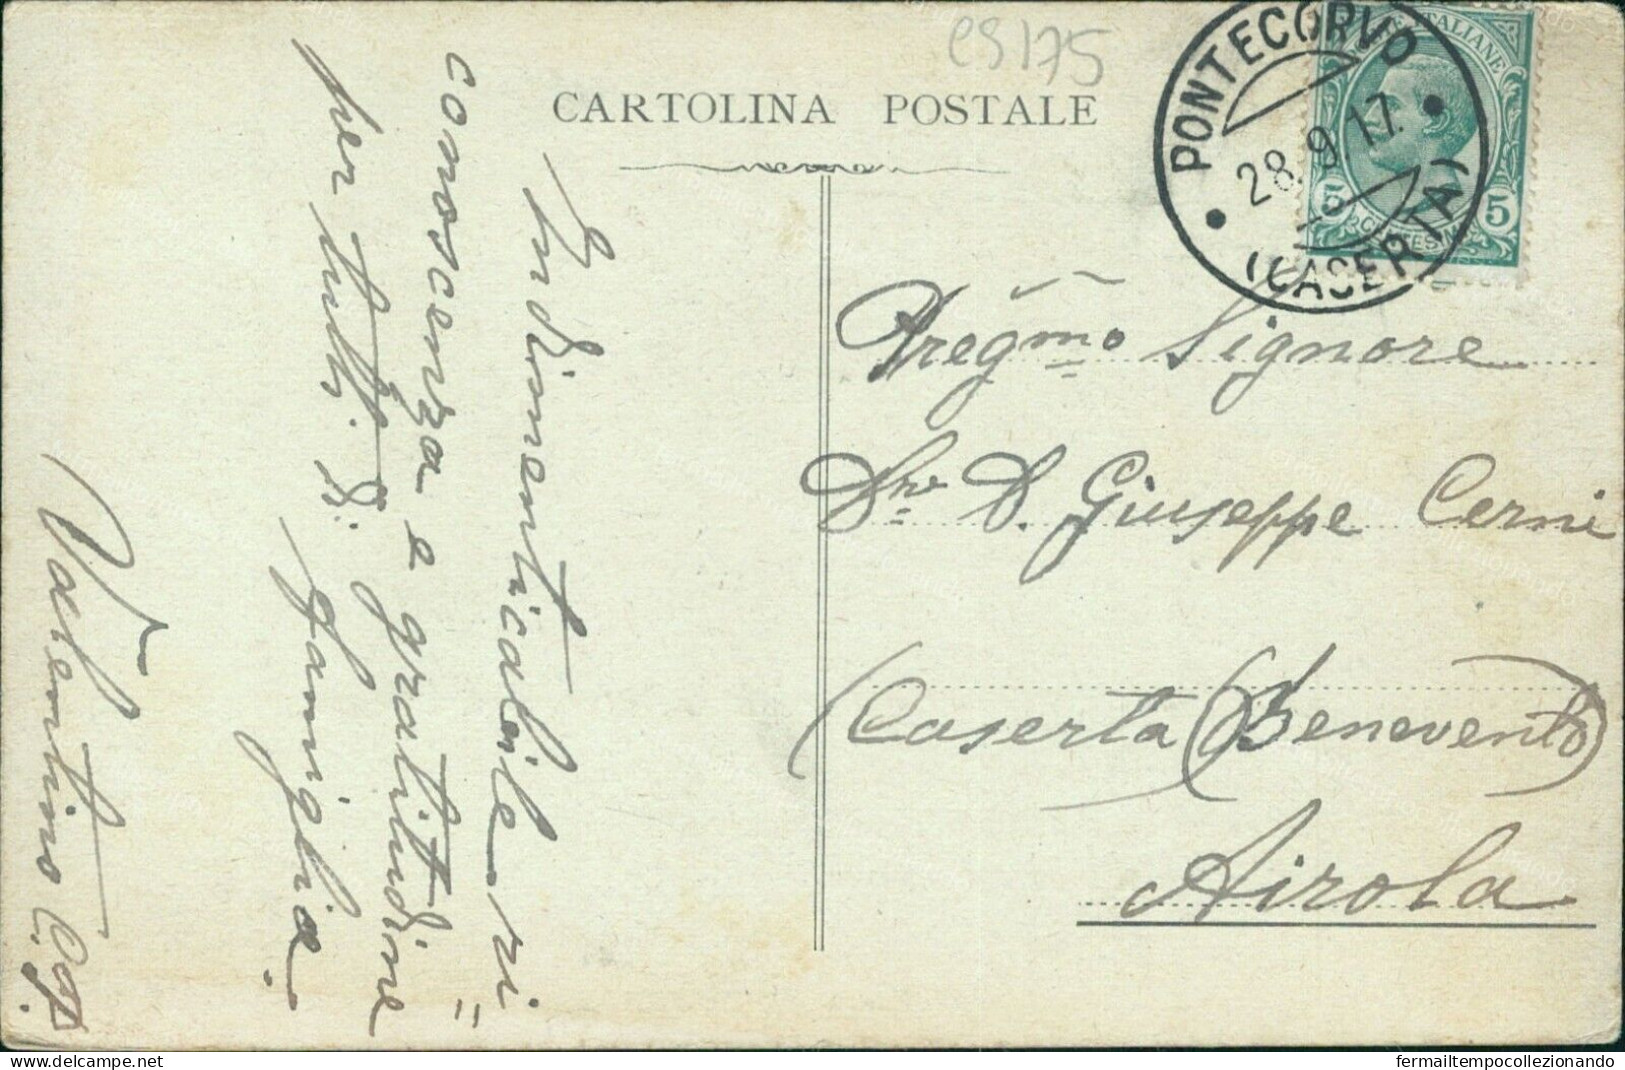 cs175
CARTOLINA POSTALE
PONTECORVO
28.9.17.
(CASERTA)
POSTE ITALIANE
5 5
CENTESIMI
Indimenticabile ri
conoscenza e gratitudine =
per tutti. di
famiglia.
Valentino
Pregmo Signore
D. Giuseppe Cerni
(Caserta (Benevento)
Airola
delcampe.net
fermailtempocollezionando